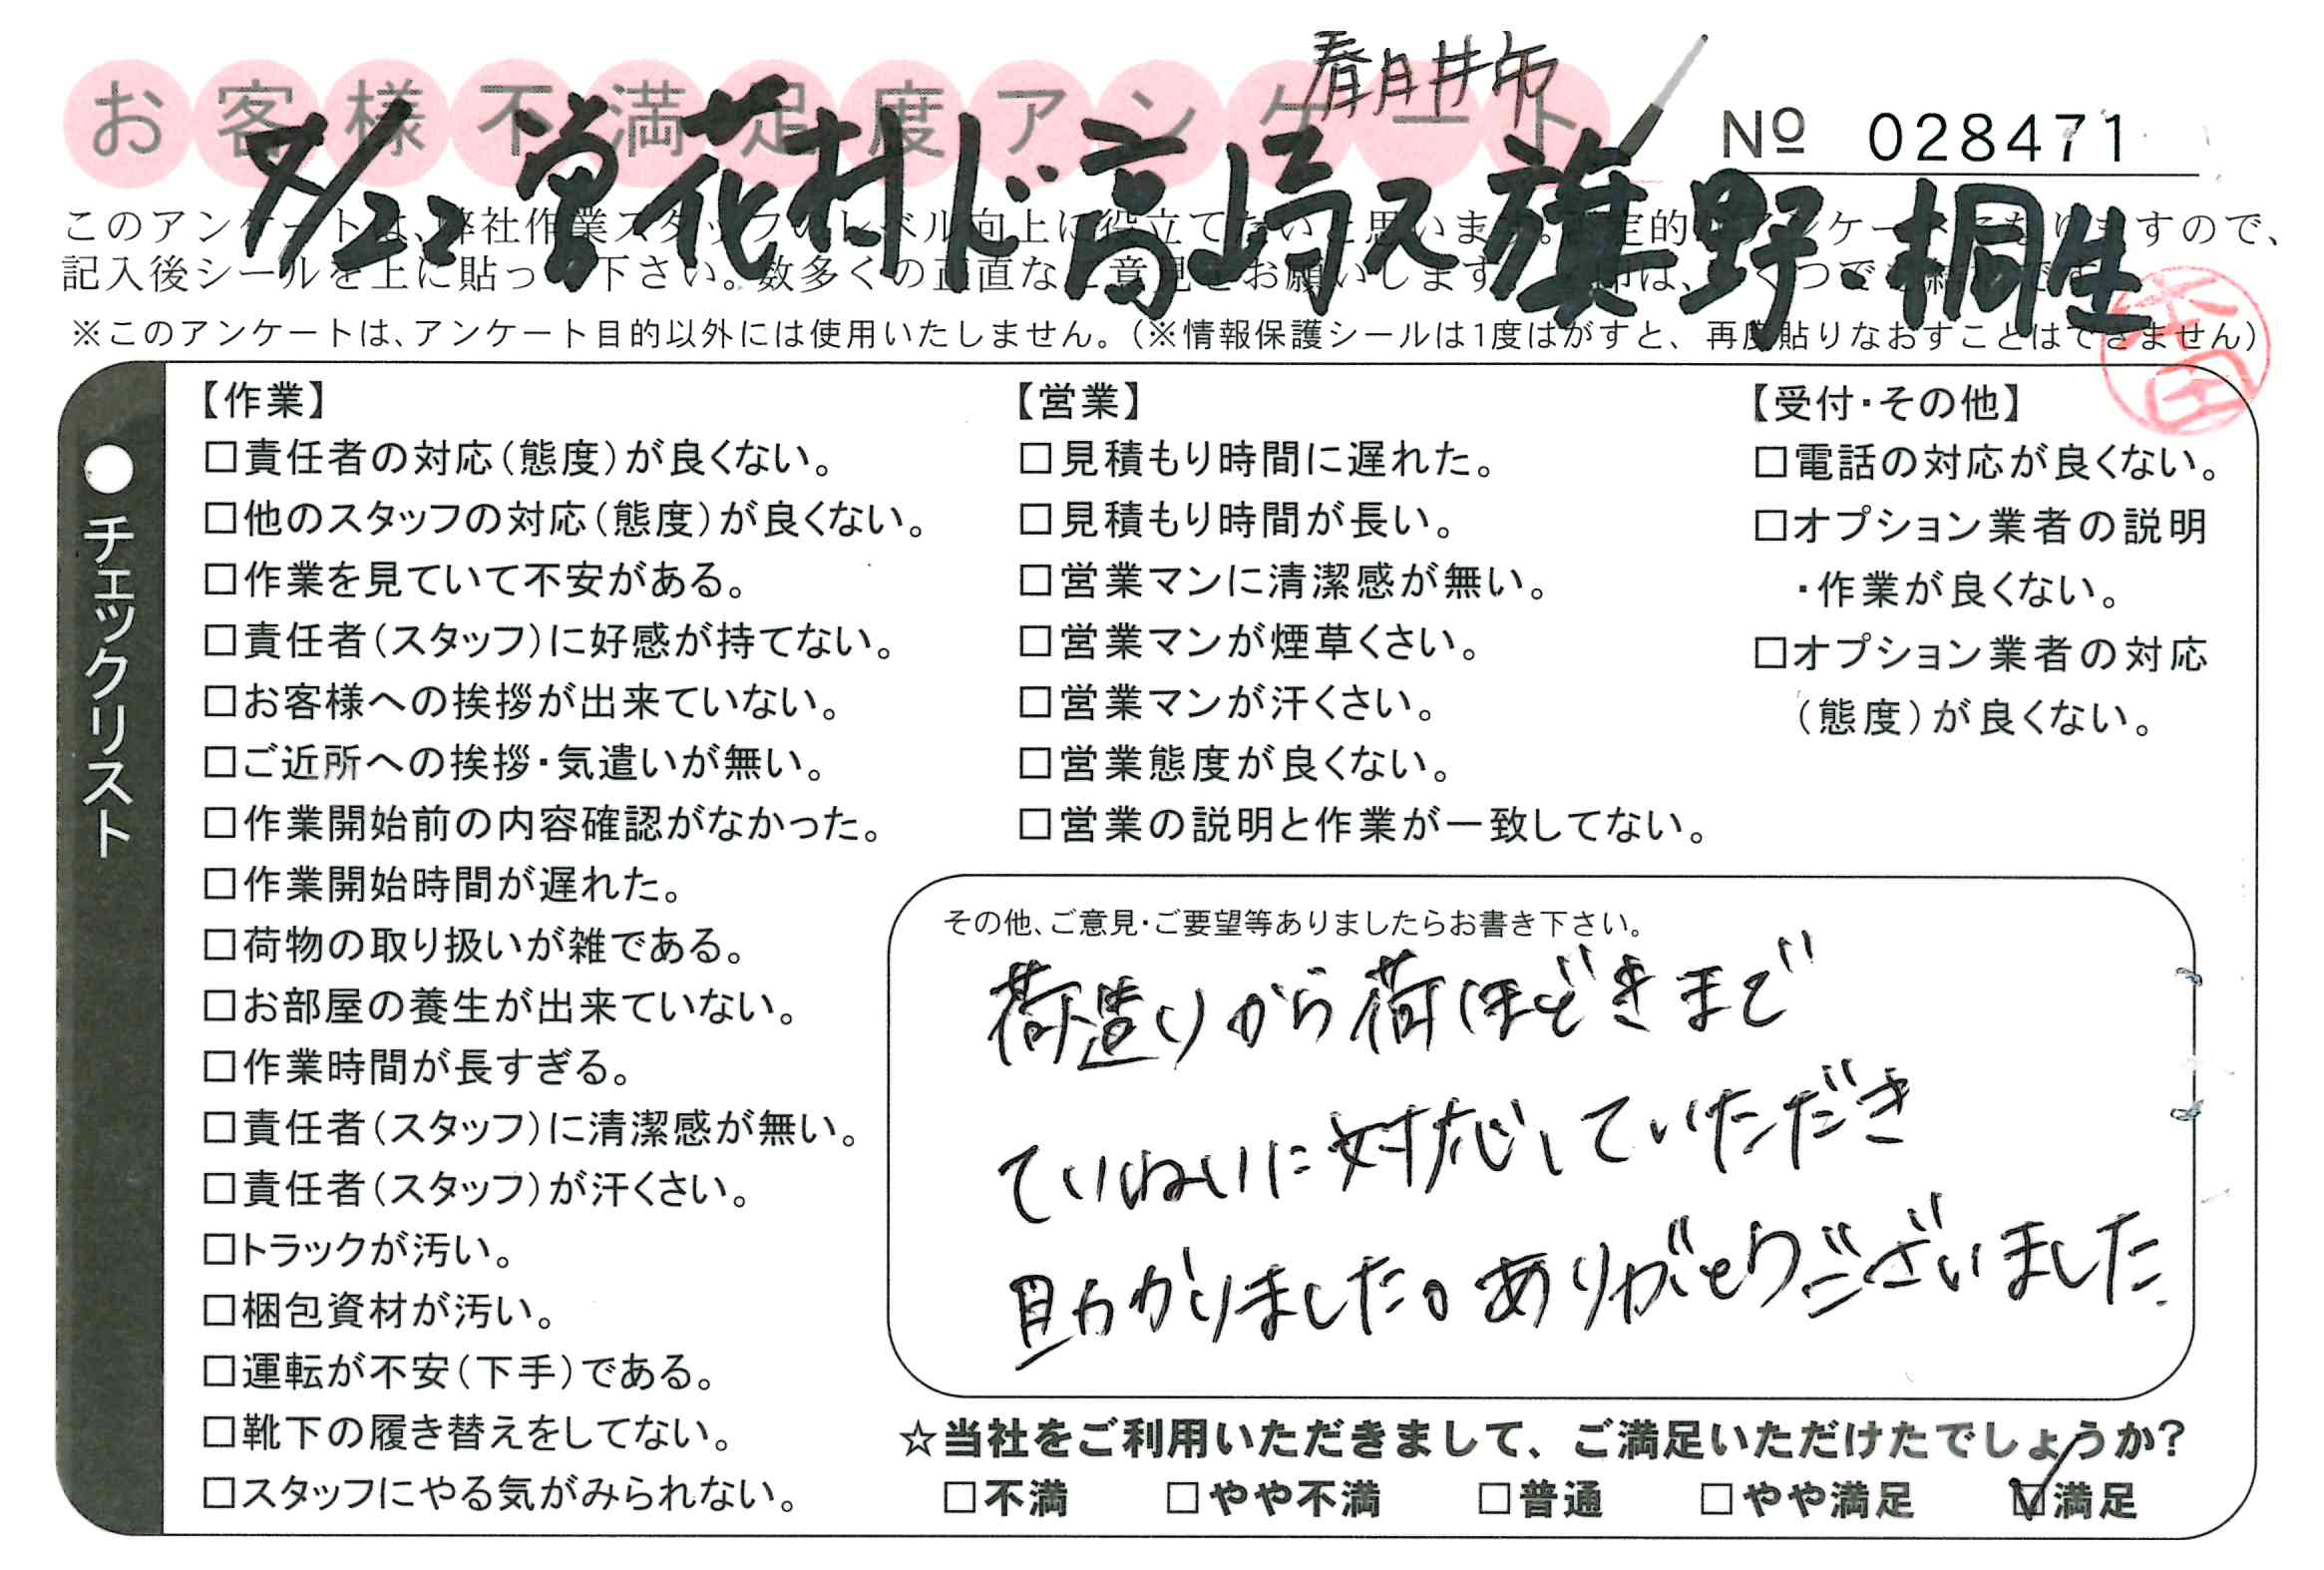 春日井市
お客様不満足度アンケート
Nº 028471
7/22 曽花村ド高崎ス旗野・桐生
このアンケートは、弊社作業スタッフのレベル向上に役立てたいと思います。
記入後シールを上に貼って下さい。数多くの正直なご意見をお願いします
※このアンケートは、アンケート目的以外には使用いたしません。(※情報保護シールは1度はがすと、再度貼りなおすことはできません)
●チェックリスト
【作業】
□責任者の対応(態度)が良くない。
□他のスタッフの対応(態度)が良くない。
□作業を見ていて不安がある。
□責任者(スタッフ)に好感が持てない。
□お客様への挨拶が出来ていない。
□ご近所への挨拶・気遣いが無い。
□作業開始前の内容確認がなかった。
□作業開始時間が遅れた。
□荷物の取り扱いが雑である。
□お部屋の養生が出来ていない。
□作業時間が長すぎる。
□責任者(スタッフ)に清潔感が無い。
□責任者(スタッフ)が汗くさい。
□トラックが汚い。
□梱包資材が汚い。
□運転が不安(下手)である。
□靴下の履き替えをしてない。
□スタッフにやる気がみられない。
【営業】
□見積もり時間に遅れた。
□見積もり時間が長い。
□営業マンに清潔感が無い。
□営業マンが煙草くさい。
□営業マンが汗くさい。
□営業態度が良くない。
□営業の説明と作業が一致してない。
【受付・その他】
□電話の対応が良くない。
□オプション業者の説明
・作業が良くない。
□オプション業者の対応
(態度)が良くない。
その他、ご意見・ご要望等ありましたらお書き下さい。
荷造りから荷ほどきまで
ていねいに対応していただき
助かりました。ありがとうございました.
☆当社をご利用いただきまして、ご満足いただけたでしょうか?
□不満 □やや不満 □普通 □やや満足 ☑満足